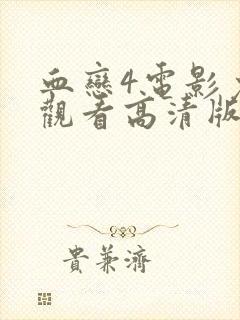 血戀4.電影
觀看高清版
貴兼濟